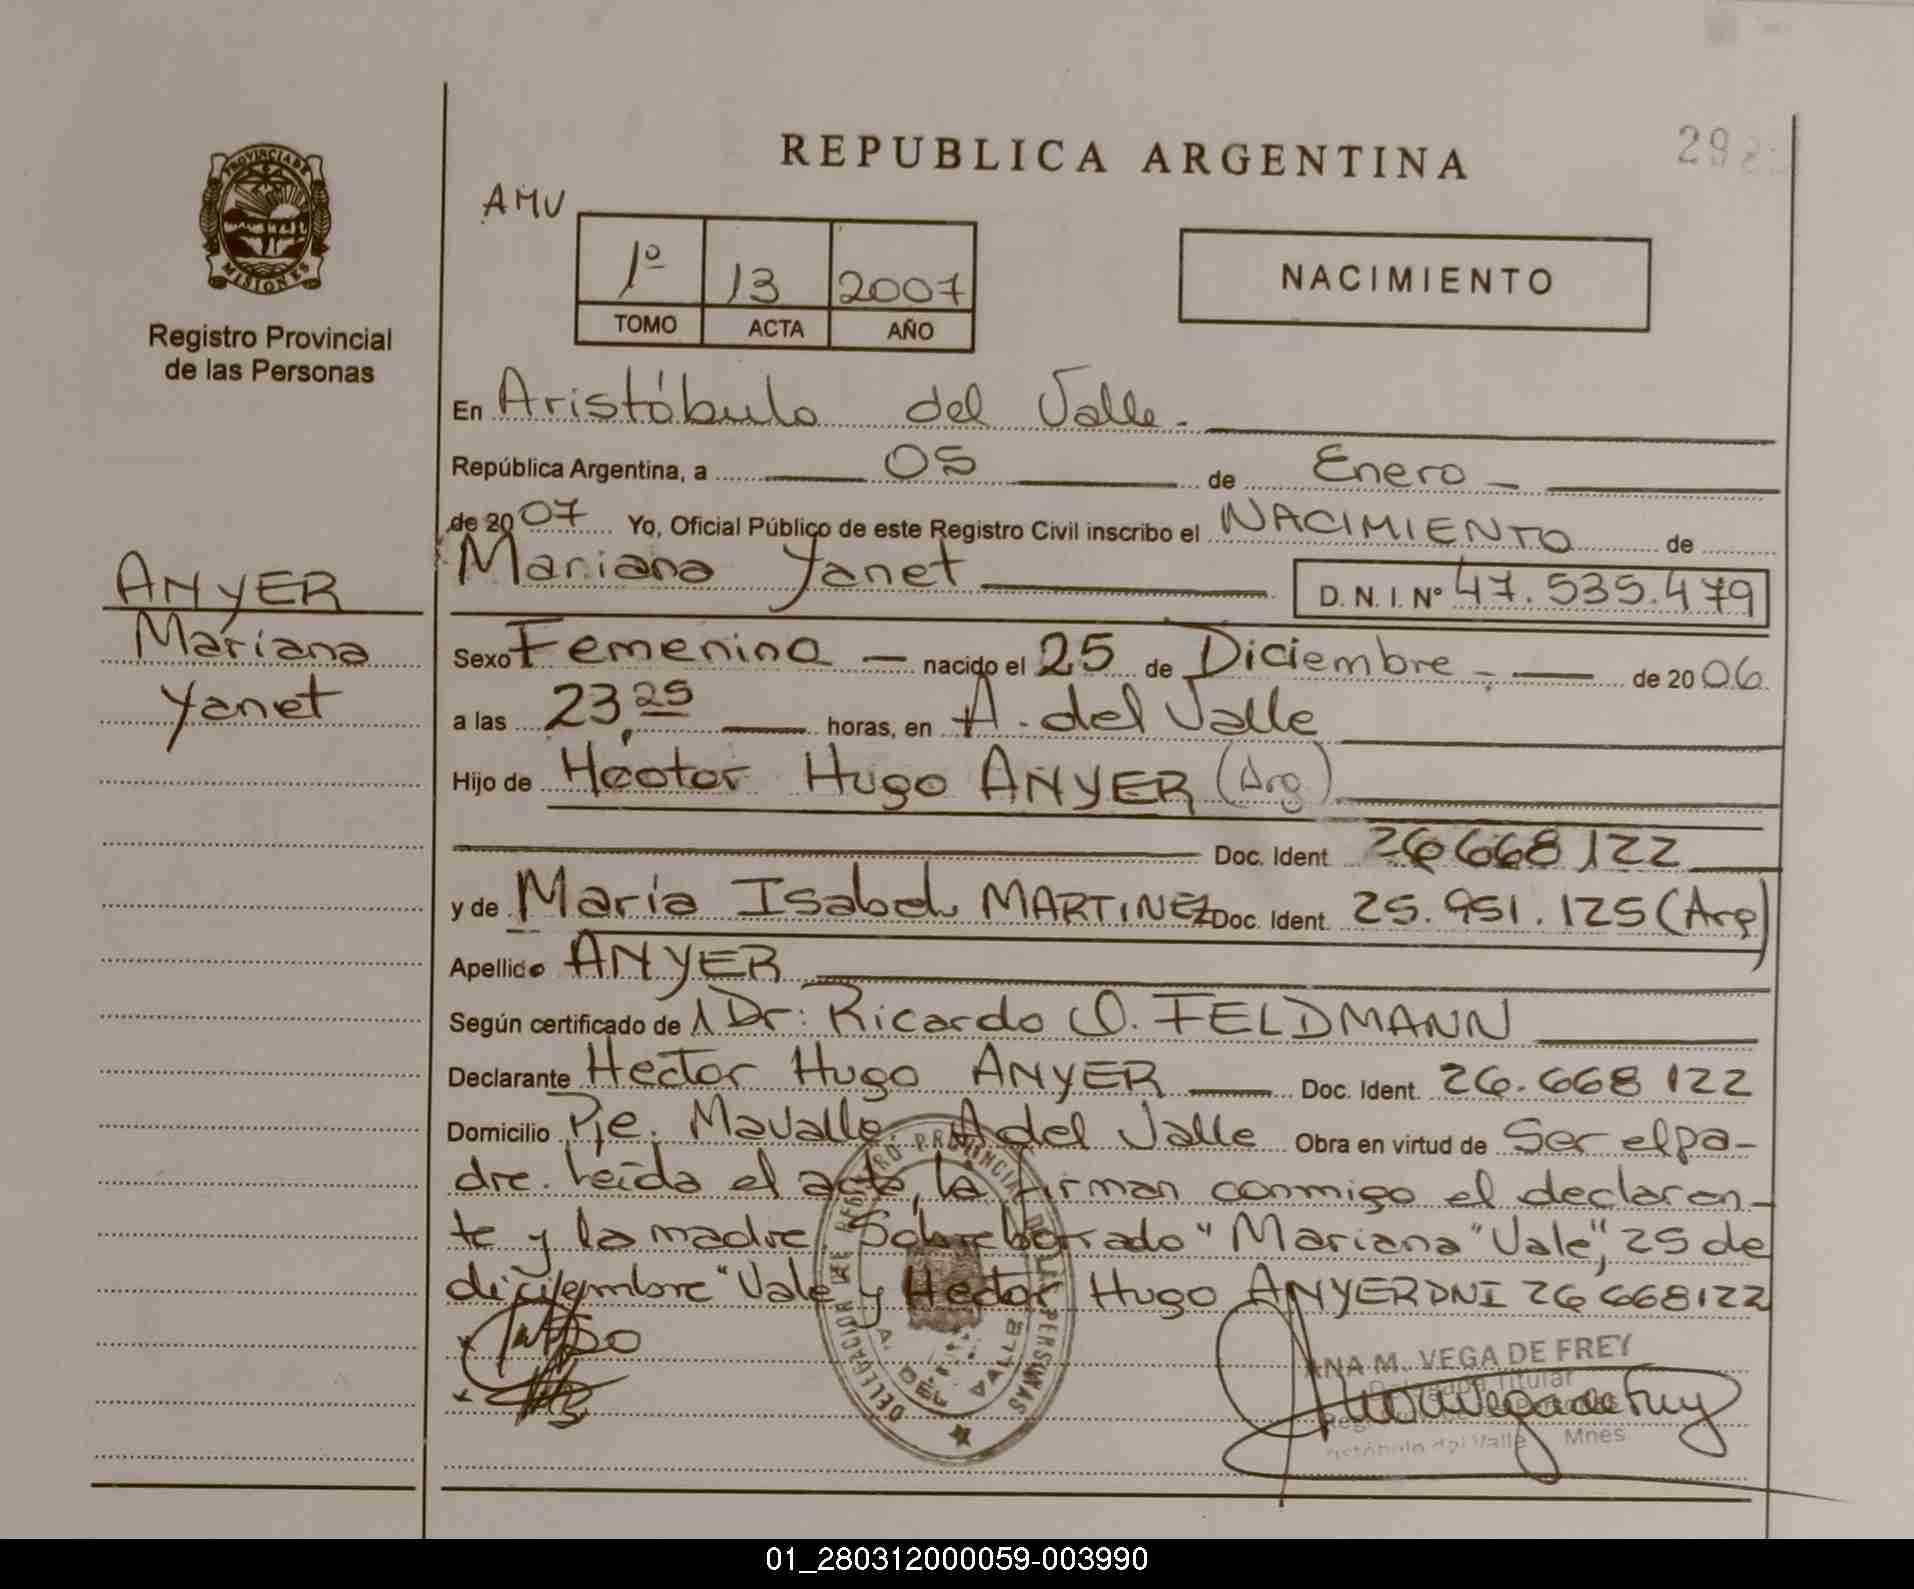 REPUBLICA ARGENTINA
PROVINCIA DE
MISIONES
Registro Provincial
de las Personas
AMU
1º 13 2007
TOMO ACTA AÑO
NACIMIENTO
En Aristóbulo del Valle.
República Argentina, a 05 de Enero
de 2007 Yo, Oficial Público de este Registro Civil inscribo el NACIMIENTO de
Mariana Yanet D. N. I. Nº 47.535.479
ANYER
Mariana
Yanet
Sexo Femenino nacido el 25 de Diciembre de 2006
a las 23,25 horas, en A. del Valle
Hijo de Héctor Hugo ANYER (Arg)
Doc. Ident 26 668 122
y de María Isabel MARTINEZ Doc. Ident. 25.951.125 (Arg)
Apellido ANYER
Según certificado de Dr: Ricardo O. FELDMANN
Declarante Hector Hugo ANYER Doc. Ident. 26.668 122
Domicilio Pje. Mavalle. A del Valle Obra en virtud de Ser el pa-
dre. Leída el acta, la firman conmigo el declaran-
te y la madre. Sobreborrado "Mariana" Vale", 25 de
diciembre "Vale y Hector Hugo ANYER DNI 26 668122
REGISTRO PROVINCIAL DE LAS PERSONAS
A. DEL VALLE
ANA M. VEGA DE FREY
Delegada Titular
Mnes
01_280312000059-003990